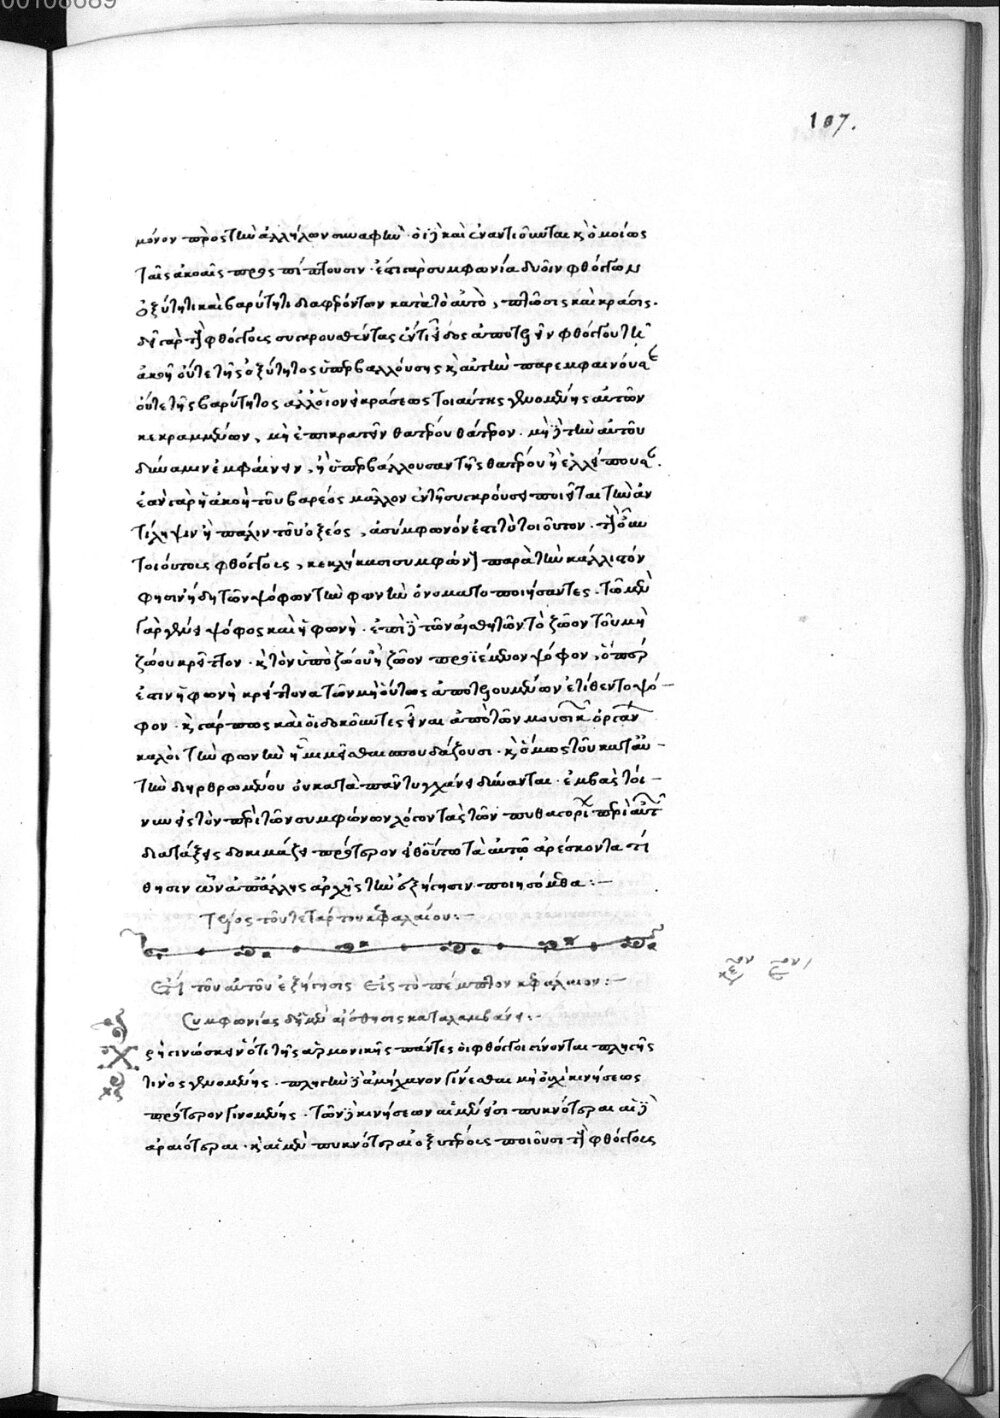 00108689
107.
μόνον πρὸς τὴν ἀλλήλων συναφὴν· οἱ δὲ καὶ ἐναντιοῦνται κỳ ὁμοίως
ταῖς ἀκοαῖς προσπίπτουσιν· ἔστι γὰρ συμφωνία δυοῖν φθόγγων
ὀξύτητι καὶ βαρύτητι διαφερόντων κατὰ τὸ αὐτὸ, πτῶσις καὶ κρᾶσις.
δεῖ γὰρ τοὺς φθόγγους συγκρουσθέντας ἕν τι εἶδος ἀποτελεῖν φθόγγου τῇ
ἀκοῇ οὔτε τῆς ὀξύτητος ὑπερβαλλούσης καὶ αὑτὴν παρεμφαινούσης
οὔτε τῆς βαρύτητος ἀλλ' οἷον εἰ κράσεως τοιαύτης γενομένης αὐτῶν
κεκραμμένων, μὴ ἐπικρατεῖν θατέρου θάτερον. μὴ δὲ τὴν αὑτοῦ
δύναμιν ἐμφαίνειν, ἢ ὑπερβάλλουσαν τῆς θατέρου ἢ ἐλλείπουσαν.
ἐὰν γὰρ ἡ ἀκοὴ τοῦ βαρέος μᾶλλον ἐν τῇ συγκρούσει ποιεῖται τὴν ἀν
τίληψιν ἢ πάλιν τοῦ ὀξέος, ἀσύμφωνόν ἐστι τὸ τοιοῦτον. τοὺς οὖν
τοιούτους φθόγγους, κεκλήκασι συμφώνους παρὰ τὴν καλλίστην
φησὶν ἤδη τῶν ψόφων τὴν φωνὴν ὀνοματοποιήσαντες. τῶν μὲν
γὰρ γένει ψόφος καὶ ἡ φωνὴ. ἐπὶ δὲ τῶν αἰσθητῶν τὸ ζῶον τοῦ μὴ
ζώου κρεῖττον. καὶ τὸν ὑπὸ ζώου ἢ ζῶον προϊέμενον ψόφον, ὅπερ
ἐστιν ἡ φωνὴ κρείττονα τῶν μὴ οὕτως ἀποτελουμένων ἐτίθεντο ψό-
φον. καὶ γάρ πως καὶ οἱ δοκοῦντες εἶναι ἀπὸ τῶν μουσικῶν ὀργάνων
καλοὶ τὴν φωνὴν μιμεῖσθαι σπουδάζουσι. καὶ ὅμως τοῦ κατ' αὐ-
τὴν διηρθρωμένου οὐ κατὰ πᾶν τυγχάνειν δύνανται. ἐμβὰς τοί-
νυν εἰς τὸν περὶ τῶν συμφώνων λόγον τὰς τῶν πυθαγορικῶν περὶ αὐτῶν
διατάξεις δοκιμάζει πρότερον εἶθ' οὕτω τὰ αὐτῷ ἀρέσκοντα τί
θησιν ὧν ἀπ' ἄλλης ἀρχῆς τὴν ἐξήγησιν ποιησόμεθα:—
Τέλος τοῦ τετάρτου κεφαλαίου:—
ἔτι τοῦ αὐτοῦ ἐξήγησις εἰς τὸ πέμπτον κεφάλαιον:—
Συμφωνίας δὴ μὲν αἴσθησις καταλαμβάνει:—
ρὴ γινώσκειν ὅτι τῆς ἁρμονικῆς πάντες οἱ φθόγγοι γίνονται πληγῆς
τινὸς γενομένης. πληγὴν δὲ ἀμήχανον γίνεσθαι μὴ οὐχὶ κινήσεως
πρότερον γινομένης. τῶν δὲ κινήσεων αἱ μέν εἰσι πυκνότεραι αἱ δὲ
ἀραιότεραι. καὶ αἱ μὲν πυκνότεραι ὀξυτέρους ποιοῦσι τοὺς φθόγγους